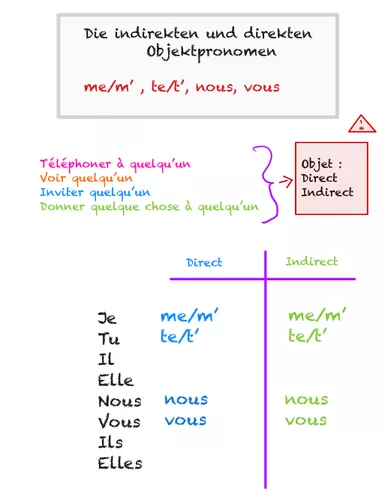 Die indirekten und direkten
Objektpronomen
me/m' , te/t', nous, vous
Téléphoner à quelqu'un
Voir quelqu'un
Inviter quelqu'un
Donner quelque chose à quelqu'un
Objet :
Direct
Indirect
Direct Indirect
Je me/m' me/m'
Tu te/t' te/t'
Il
Elle
Nous nous nous
Vous vous vous
Ils
Elles